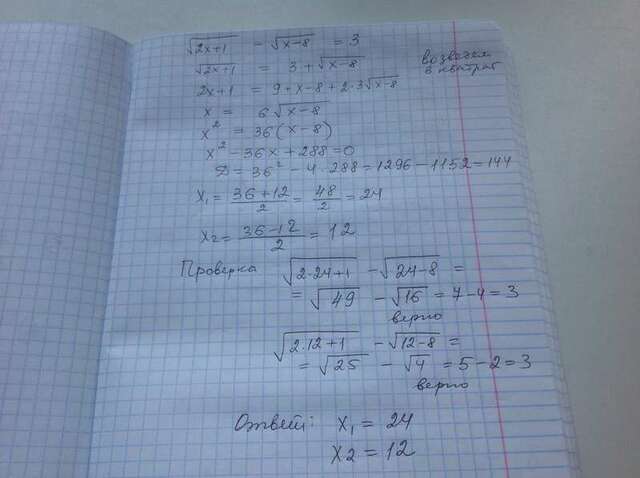 √2x+1 = √x-8 = 3
√2x+1 = 3+√x-8 возведем
2x+1 = 9+x-8+2·3√x-8 в квадрат
x = 6√x-8
x² = 36(x-8)
x²-36x+288=0
D=36²-4·288=1296-1152=144
x₁= 36+12/2 = 48/2 = 24
x₂= 36-12/2 = 12
Проверка √2·24+1 -√24-8 =
=√49 -√16 = 7-4=3
верно
√2·12+1 -√12-8 =
=√25 -√4 =5-2=3
верно
Ответ: x₁ = 24
x2 = 12